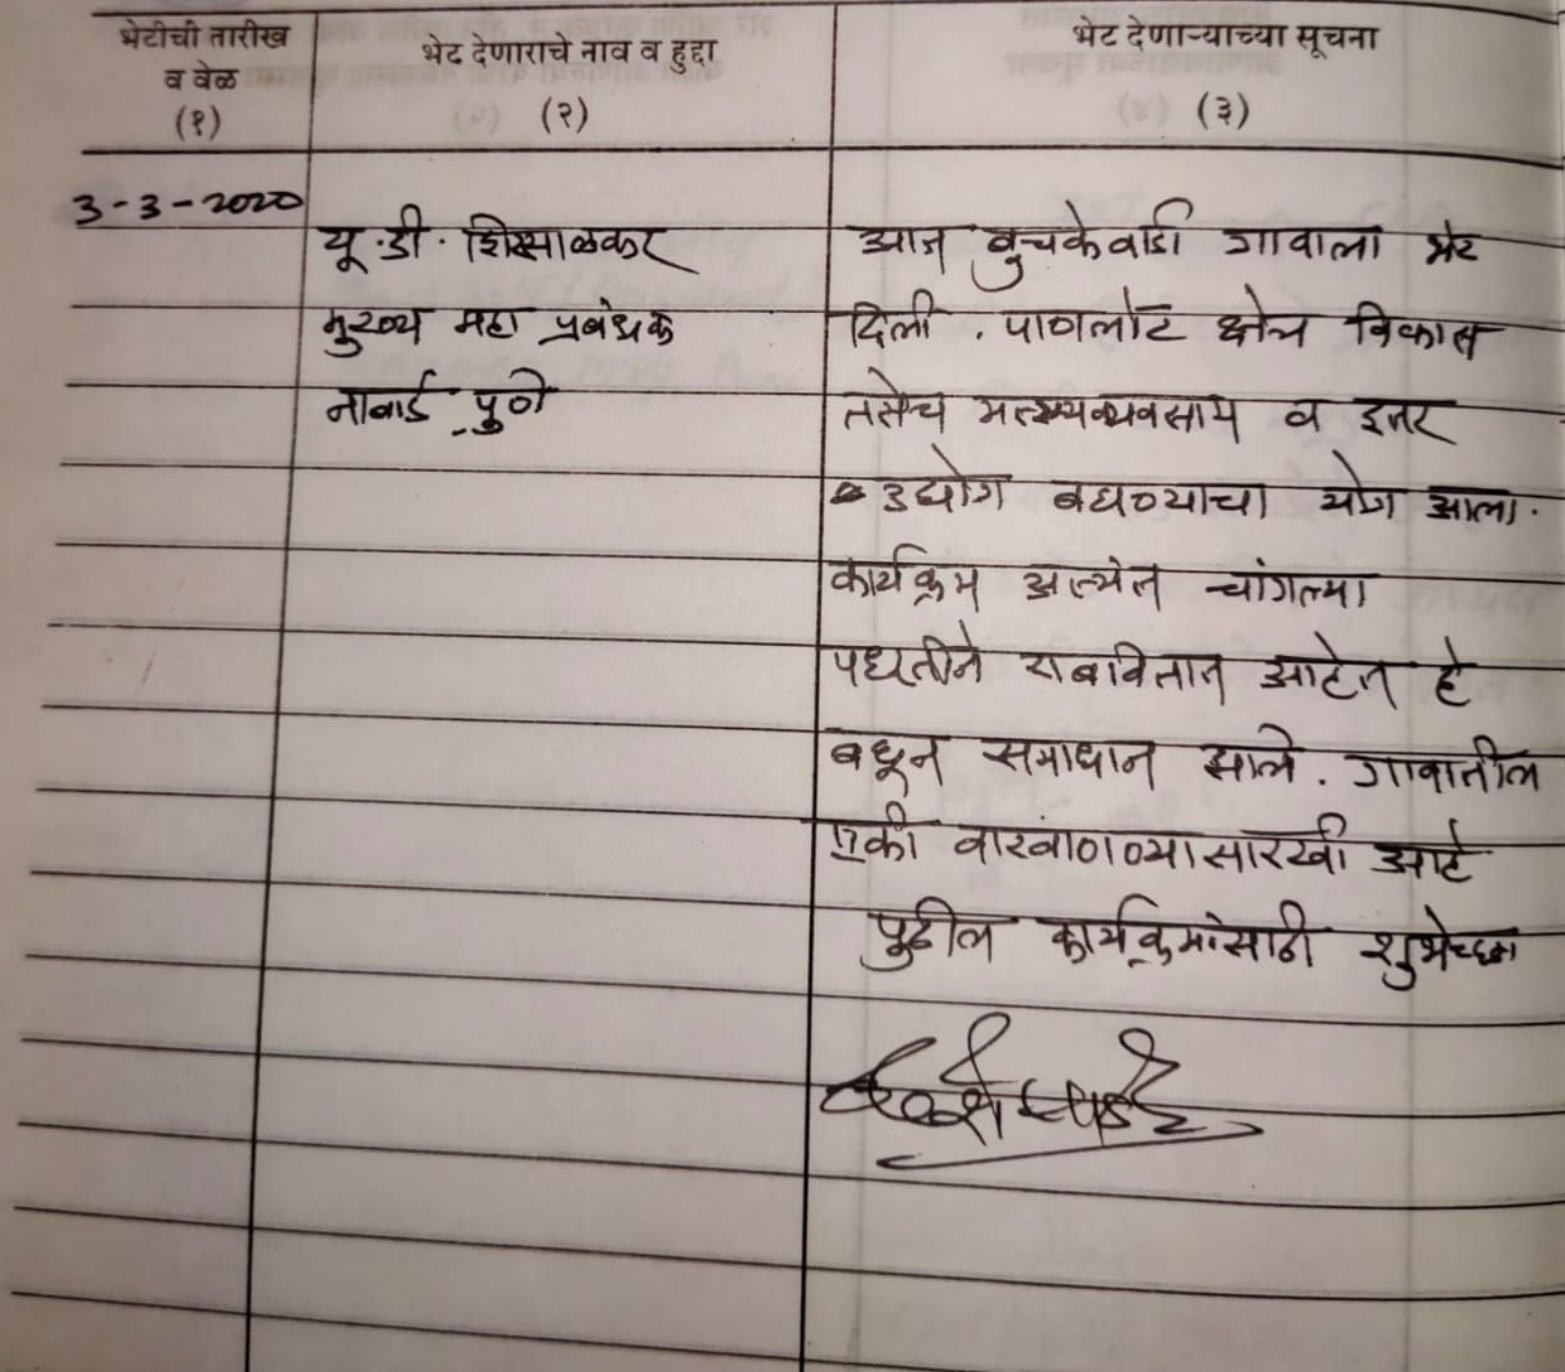 भेटीची तारीख
व वेळ
(१)
भेट देणाराचे नाव व हुद्दा
(२)
भेट देणाऱ्याच्या सूचना
(३)
3-3-2020
यू.डी. शिरसाळकर
मुख्य महा प्रबंधक
नाबार्ड, पुणे
आज बुचकेवाडी गावाला भेट
दिली. पाणलोट क्षेत्र विकास
तसेच मत्स्यव्यवसाय व इतर
उद्योग बघण्याचा योग आला.
कार्यक्रम अत्यंत चांगल्या
पध्दतीने राबवितात आहेत हे
बघून समाधान झाले. गावातील
एकी वाखाणण्यासारखी आहे
पुढील कार्यक्रमांसाठी शुभेच्छा